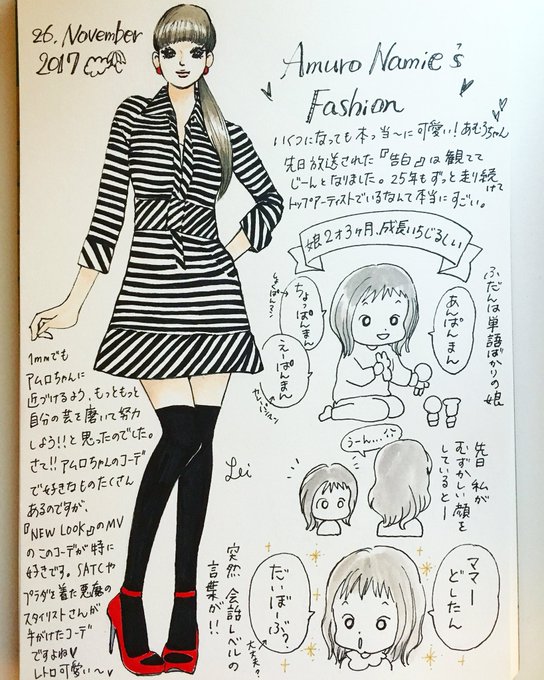 26. November
2017
Amuro Namie's
Fashion
いくつになっても本っ当〜に可愛い!あむろちゃん
先日放送された『告白』は観てて
じーんとなりました。25年もずっと走り続けて
トップアーティストでいるなんて本当にすごい。
1mmでも
アムロちゃんに
近づけるよう、もっともっと
自分の芸を磨いて努力
しよう!!と思ったのでした。
さて!!アムロちゃんのコーデ
で好きなものたくさん
あるのですが、
『NEW LOOK』のMV
のこのコーデが特に
好きです。SATCや
プラダを着た悪魔の
スタイリストさんが
手がけたコーデ
ですよね♥
レトロ可愛い〜♥
Lei
娘2才3ヶ月、成長いちじるしい
ふだんは単語ばかりの娘
あんぱんまん
ちょっぱんまん
しょくぱんマン
えーぱんまん
先日 私が
むずかしい顔を
していると—
うーん…
ママー
どしたん
だいぼーぶ?
大丈夫?
突然 会話レベルの
言葉が!!